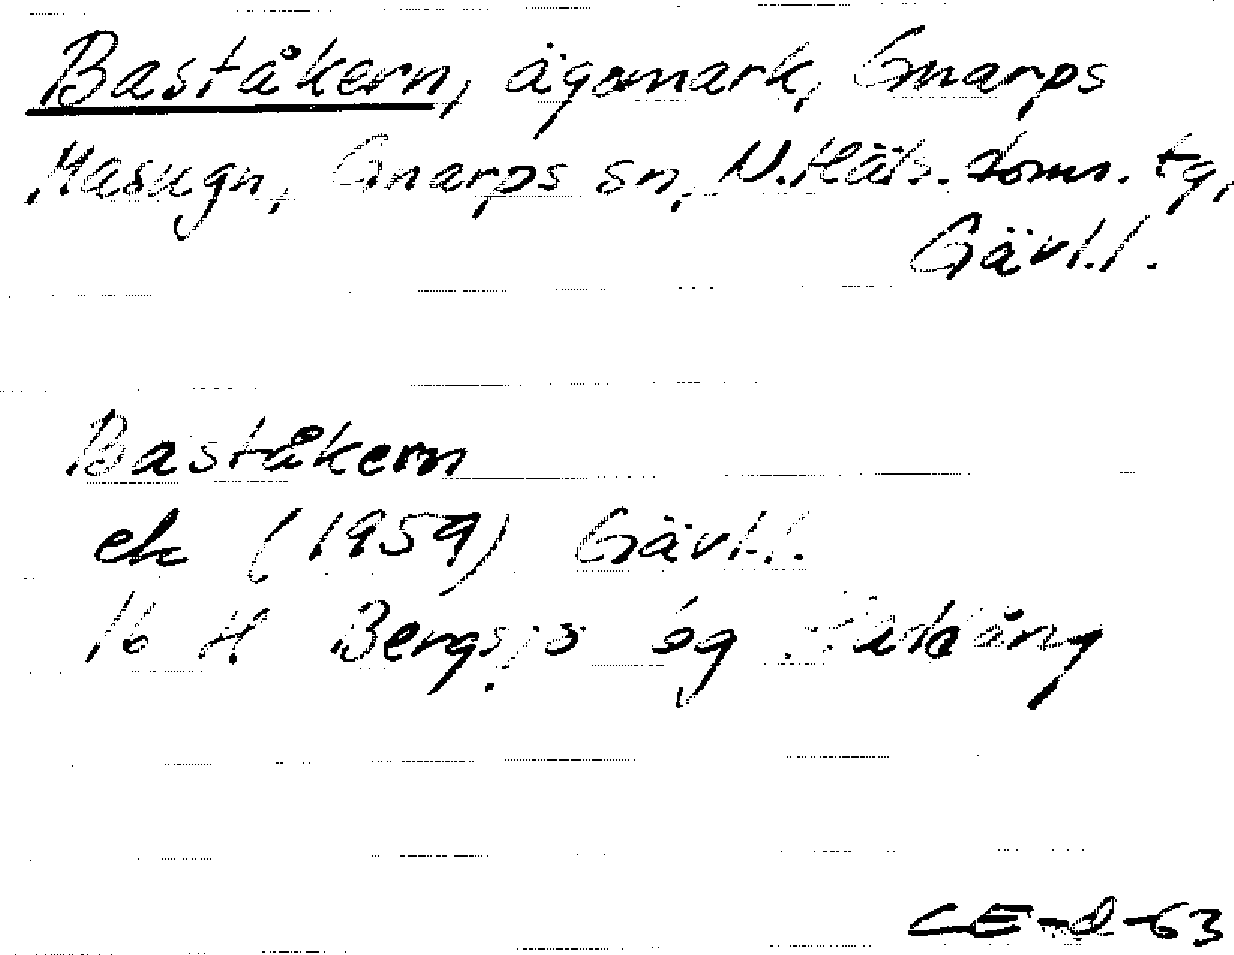 Baståkern, ägomark, Gnarps
Masugn, Gnarps sn, N. Häls. doms. tg,
Gävl.l.
Baståkern
ek (1959) Gävl.l.
16 H Bergsjö ög
CE-d-63